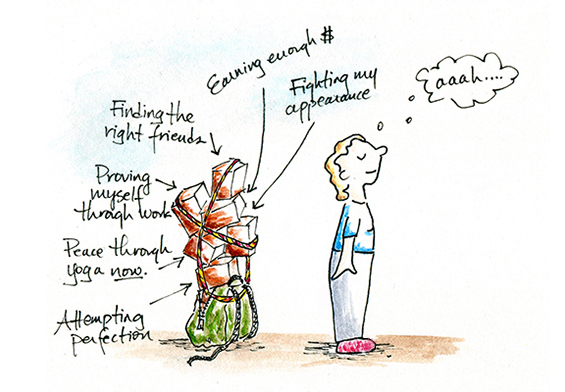 Earning enough $
Fighting my
appearance
Finding the
right friends
Proving
myself
through work
Peace through
yoga now.
Attempting
perfection
aaah....